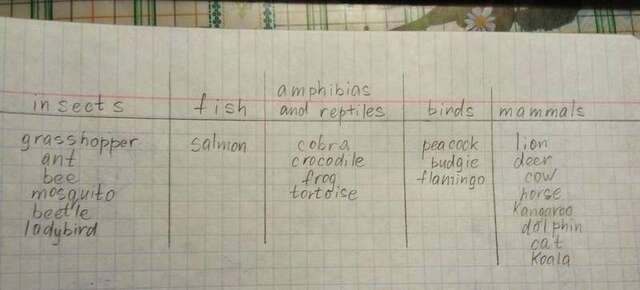 insects fish amphibias and reptiles birds mammals
grasshopper salmon cobra peacock lion
ant crocodile budgie deer
bee frog flamingo cow
mosquito tortoise horse
beetle kangaroo
ladybird dolphin
cat
koala